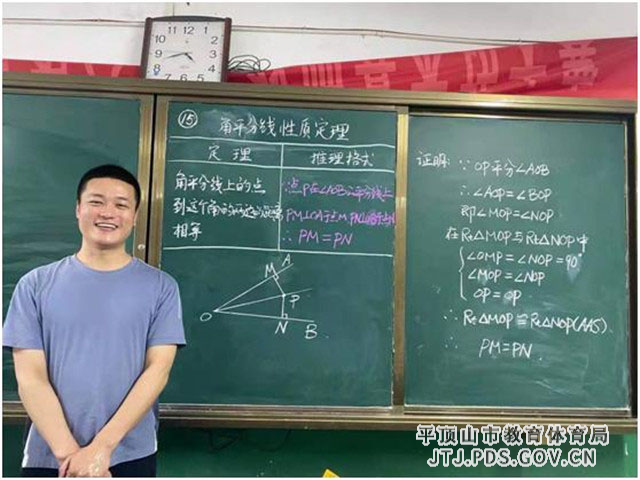 ⑮ 角平分线性质定理
定理
推理格式
角平分线上的点
到这个角的两边的距离
相等
∵点P在∠AOB的平分线上
PM⊥OA于点M
∴ PM=PN
A
M
P
O
N
B
证明: ∵ OP平分∠AOB
∴ ∠AOP=∠BOP
即∠MOP=∠NOP
在Rt△MOP与Rt△NOP中
∠OMP=∠NOP=90°
∠MOP=∠NOP
OP=OP
∴ Rt△MOP≌Rt△NOP(AAS).
∴ PM=PN.
平顶山市教育体育局
JTJ.PDS.GOV.CN